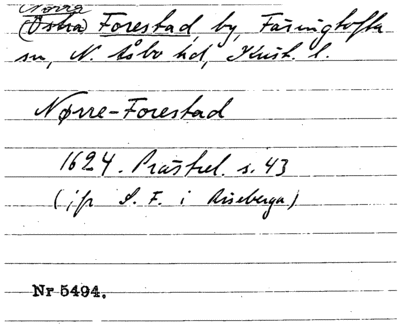 Norra
(Östra) Forestad, by, Färingtofta
sn, N. Åsbo hd, Krist. l.
Nørre-Forestad
1624. Prästrel. s. 43
(jfr S. F. i Riseberga)
Nr 5494.